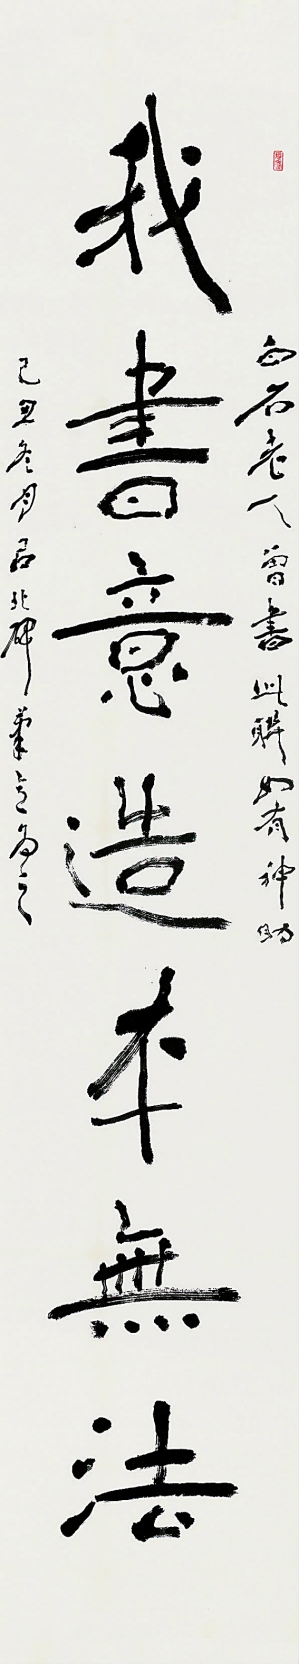 白石老人曾書此聯如有神助
我書意造本無法
己丑冬月以北碑筆意為之